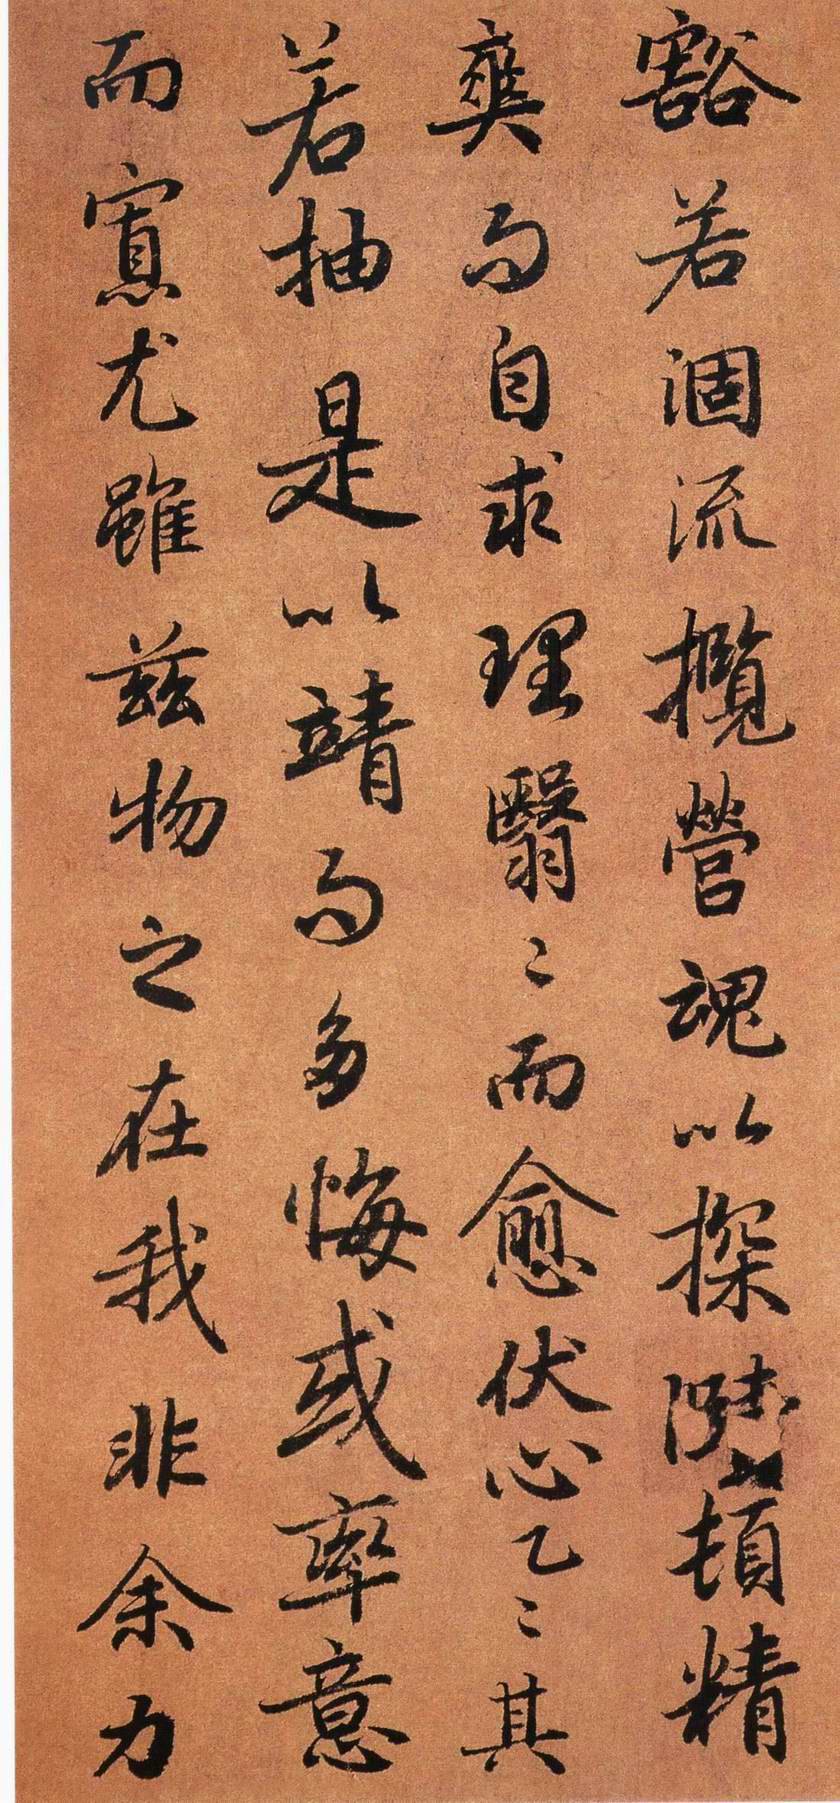 豁若涸流攬營魂以探賾頓精
爽而自求理翳〻而愈伏心乙〻其
若抽是以靖而多悔或率意
而寡尤雖茲物之在我非余力